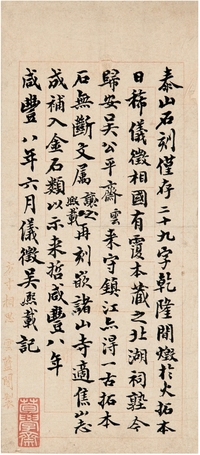 泰山石刻僅存二十九字乾隆間燬於火拓本
日稀儀徵相國有覆本藏之北湖祠塾今
歸安吳公平齋雲来守鎮江亦得一古拓本
石無斷文属讓之熙載再刻嵌諸山寺適焦山志
成補入金石類以示来哲咸豐八年
咸豐八年六月儀徵吳熙載記